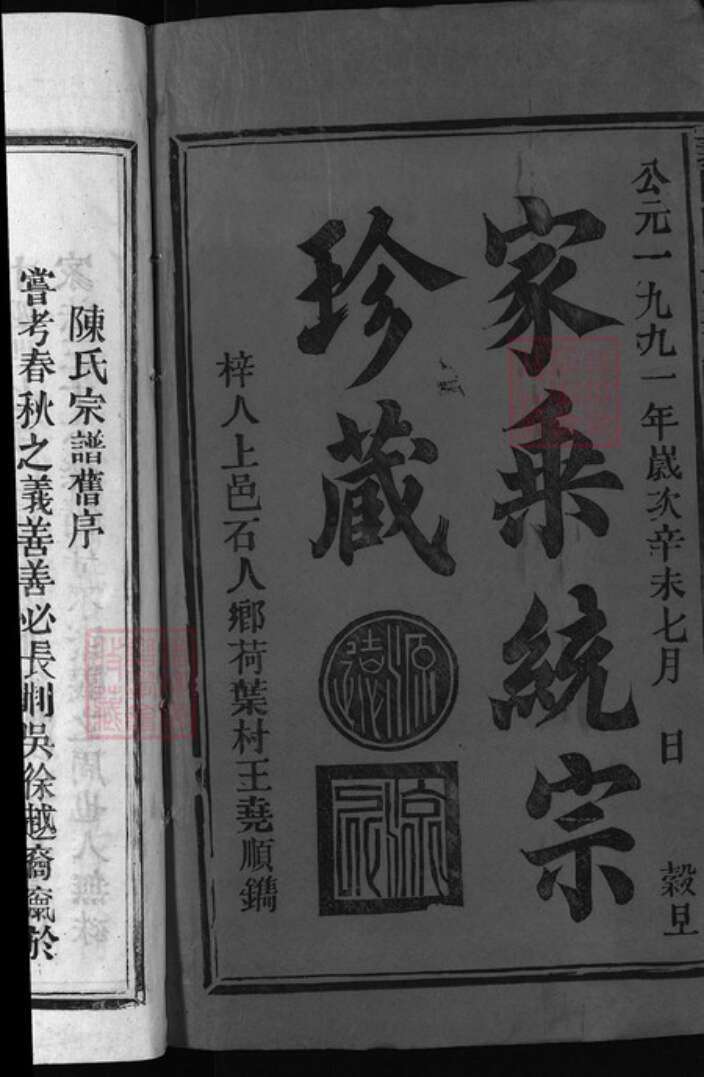 公元一九九一年歲次辛未七月 日 穀旦
家乘統宗
珍藏
源遠
梓人上邑石人鄉荷葉村王堯順鐫
陳氏宗譜舊序
嘗考春秋之義善善必長荆吳徐越裔
於